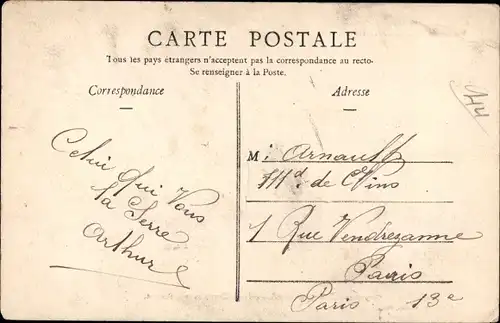 CARTE POSTALE
Tous les pays étrangers n'acceptent pas la correspondance au recto.
Se renseigner à la Poste.
Correspondance
Adresse
Celui qui Vous
la Serre
Arthur
M. Arnault
Md. de Vins
1 Rue Vendrezanne
Paris
Paris 13e